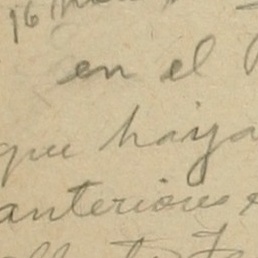 16
en el
que haya
anteriores